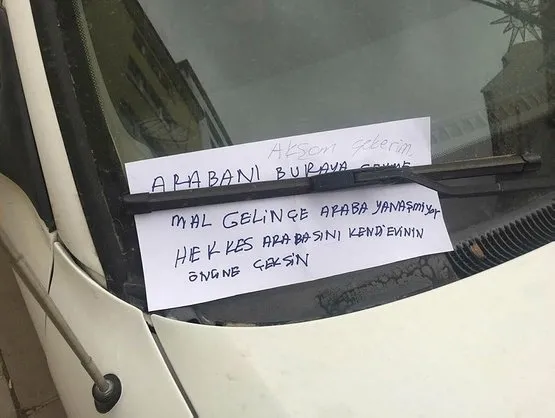 Akşam çekerim
ARABANI BURAYA ÇEKME
MAL GELİNÇE ARABA YANAŞMIYOR
HEKKES ARABASINI KENDİ EVİNİN
ÖNGNE ÇEKSİN